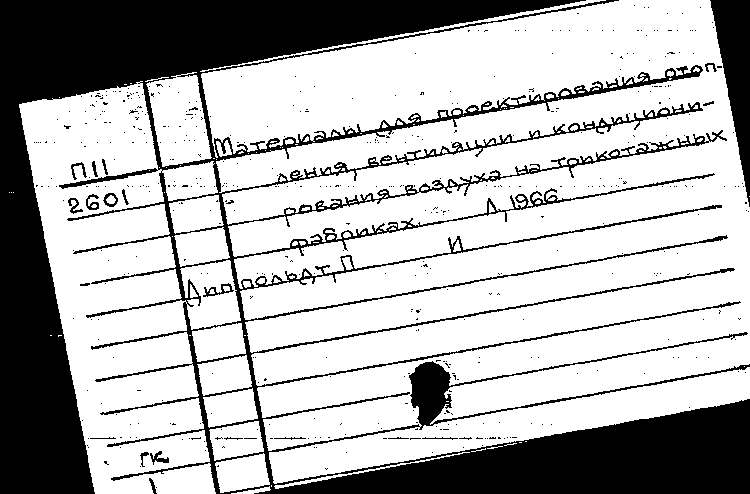 Материалы для проектирования отоп-
П11 ления, вентиляции и кондициони-
2601 рования воздуха на трикотажных
фабриках. Л, 1966.
Диппольдт, П И
гк